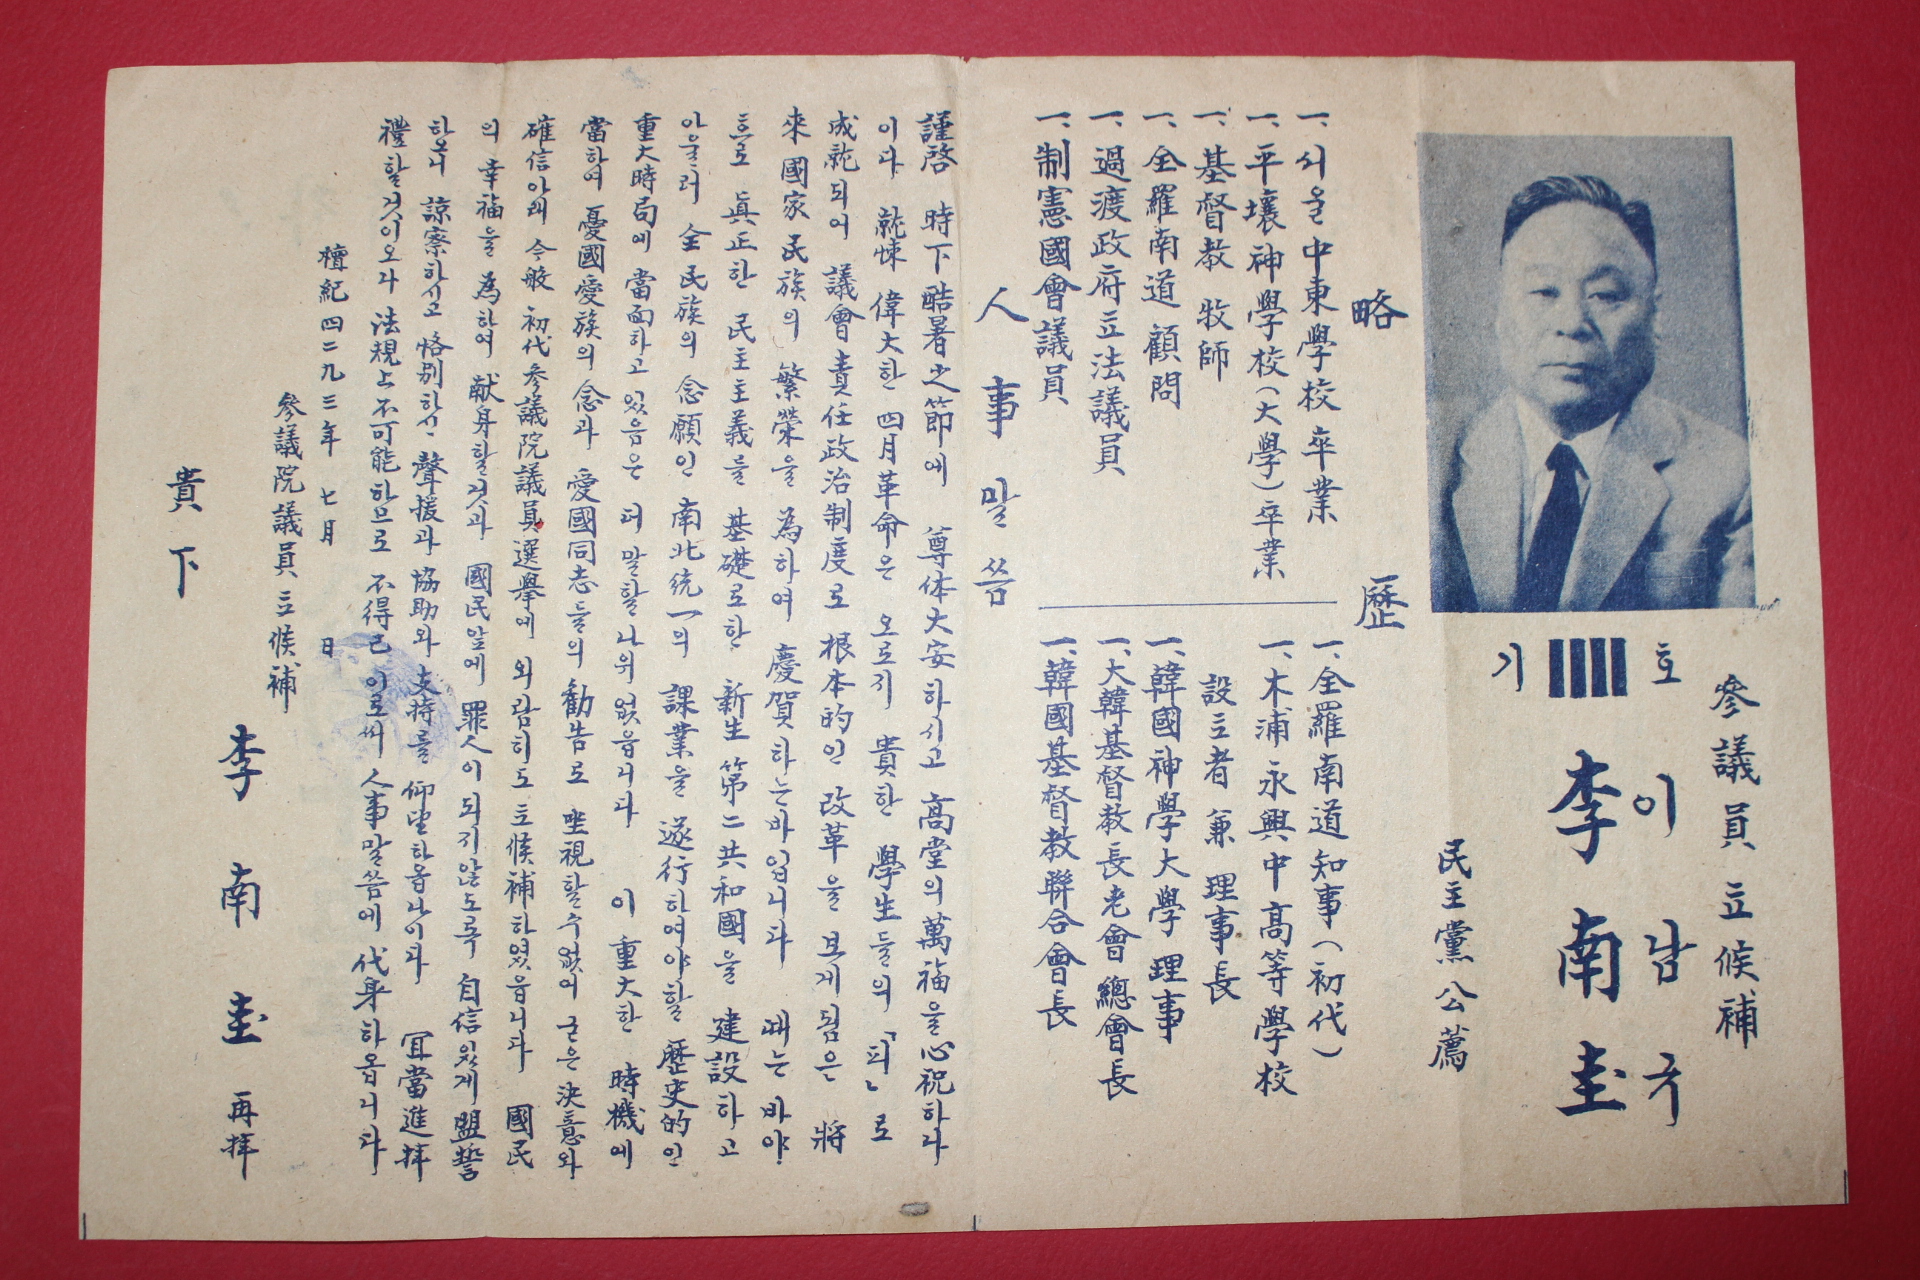 參議員 立候補
기 호
이남규
李南圭
民主黨公薦
略歷
一、서울中東學校卒業
一、平壤神學校(大學)卒業
一、基督敎 牧師
一、全羅南道 顧問
一、過渡政府立法議員
一、制憲國會議員
一、全羅南道知事(初代)
一、木浦永興中高等學校
設立者 兼 理事長
一、韓國神學大學 理事
一、大韓基督敎長老會 總會長
一、韓國基督敎聯合會長
人事말씀
謹啓 時下酷暑之節에 尊体大安하시고 高堂의 萬福을 心祝하나
이다 就悚 偉大한 四月革命은 오로지 貴한 學生들의「피」로
成就되어 議會責任政治制度로 根本的인 改革을 보게됨은 將
來國家民族의 繁榮을 為하여 慶賀하는바입니다 때는 바야
흐로 眞正한 民主主義를 基礎로한 新生第二共和國을 建設하고
아울러 全民族의 念願인 南北統一의 課業을 遂行하여야할 歷史的인
重大時局에 當面하고 있음은 더 말할나위 없읍니다 이 重大한 時機에
當하여 憂國愛族의 念과 愛國同志들의 勸告로 坐視할수없어 굳은 決意와
確信아래 今般 初代參議院議員選擧에 외람히도 立候補하였읍니다 國民
의 幸福을 為하여 献身할것과 國民앞에 罪人이 되지않도록 自信있게 盟誓
하오니 諒察하시고 恪別하신 聲援과 協助와 支持를 仰望하옵나이다 宜當進拜
禮할것이오나 法規上 不可能하므로 不得已 이로써 人事말씀에 代身하옵니다
檀紀四二九三年 七月 日
參議院議員 立候補
李南圭 再拜
貴下